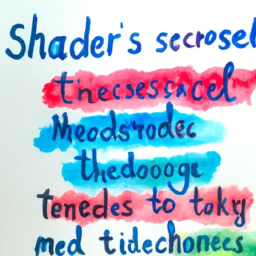 Shader's secrosel
t'necsessacel
Meods'rodec
thedoooge
tenedes to tokry
med tidechonees